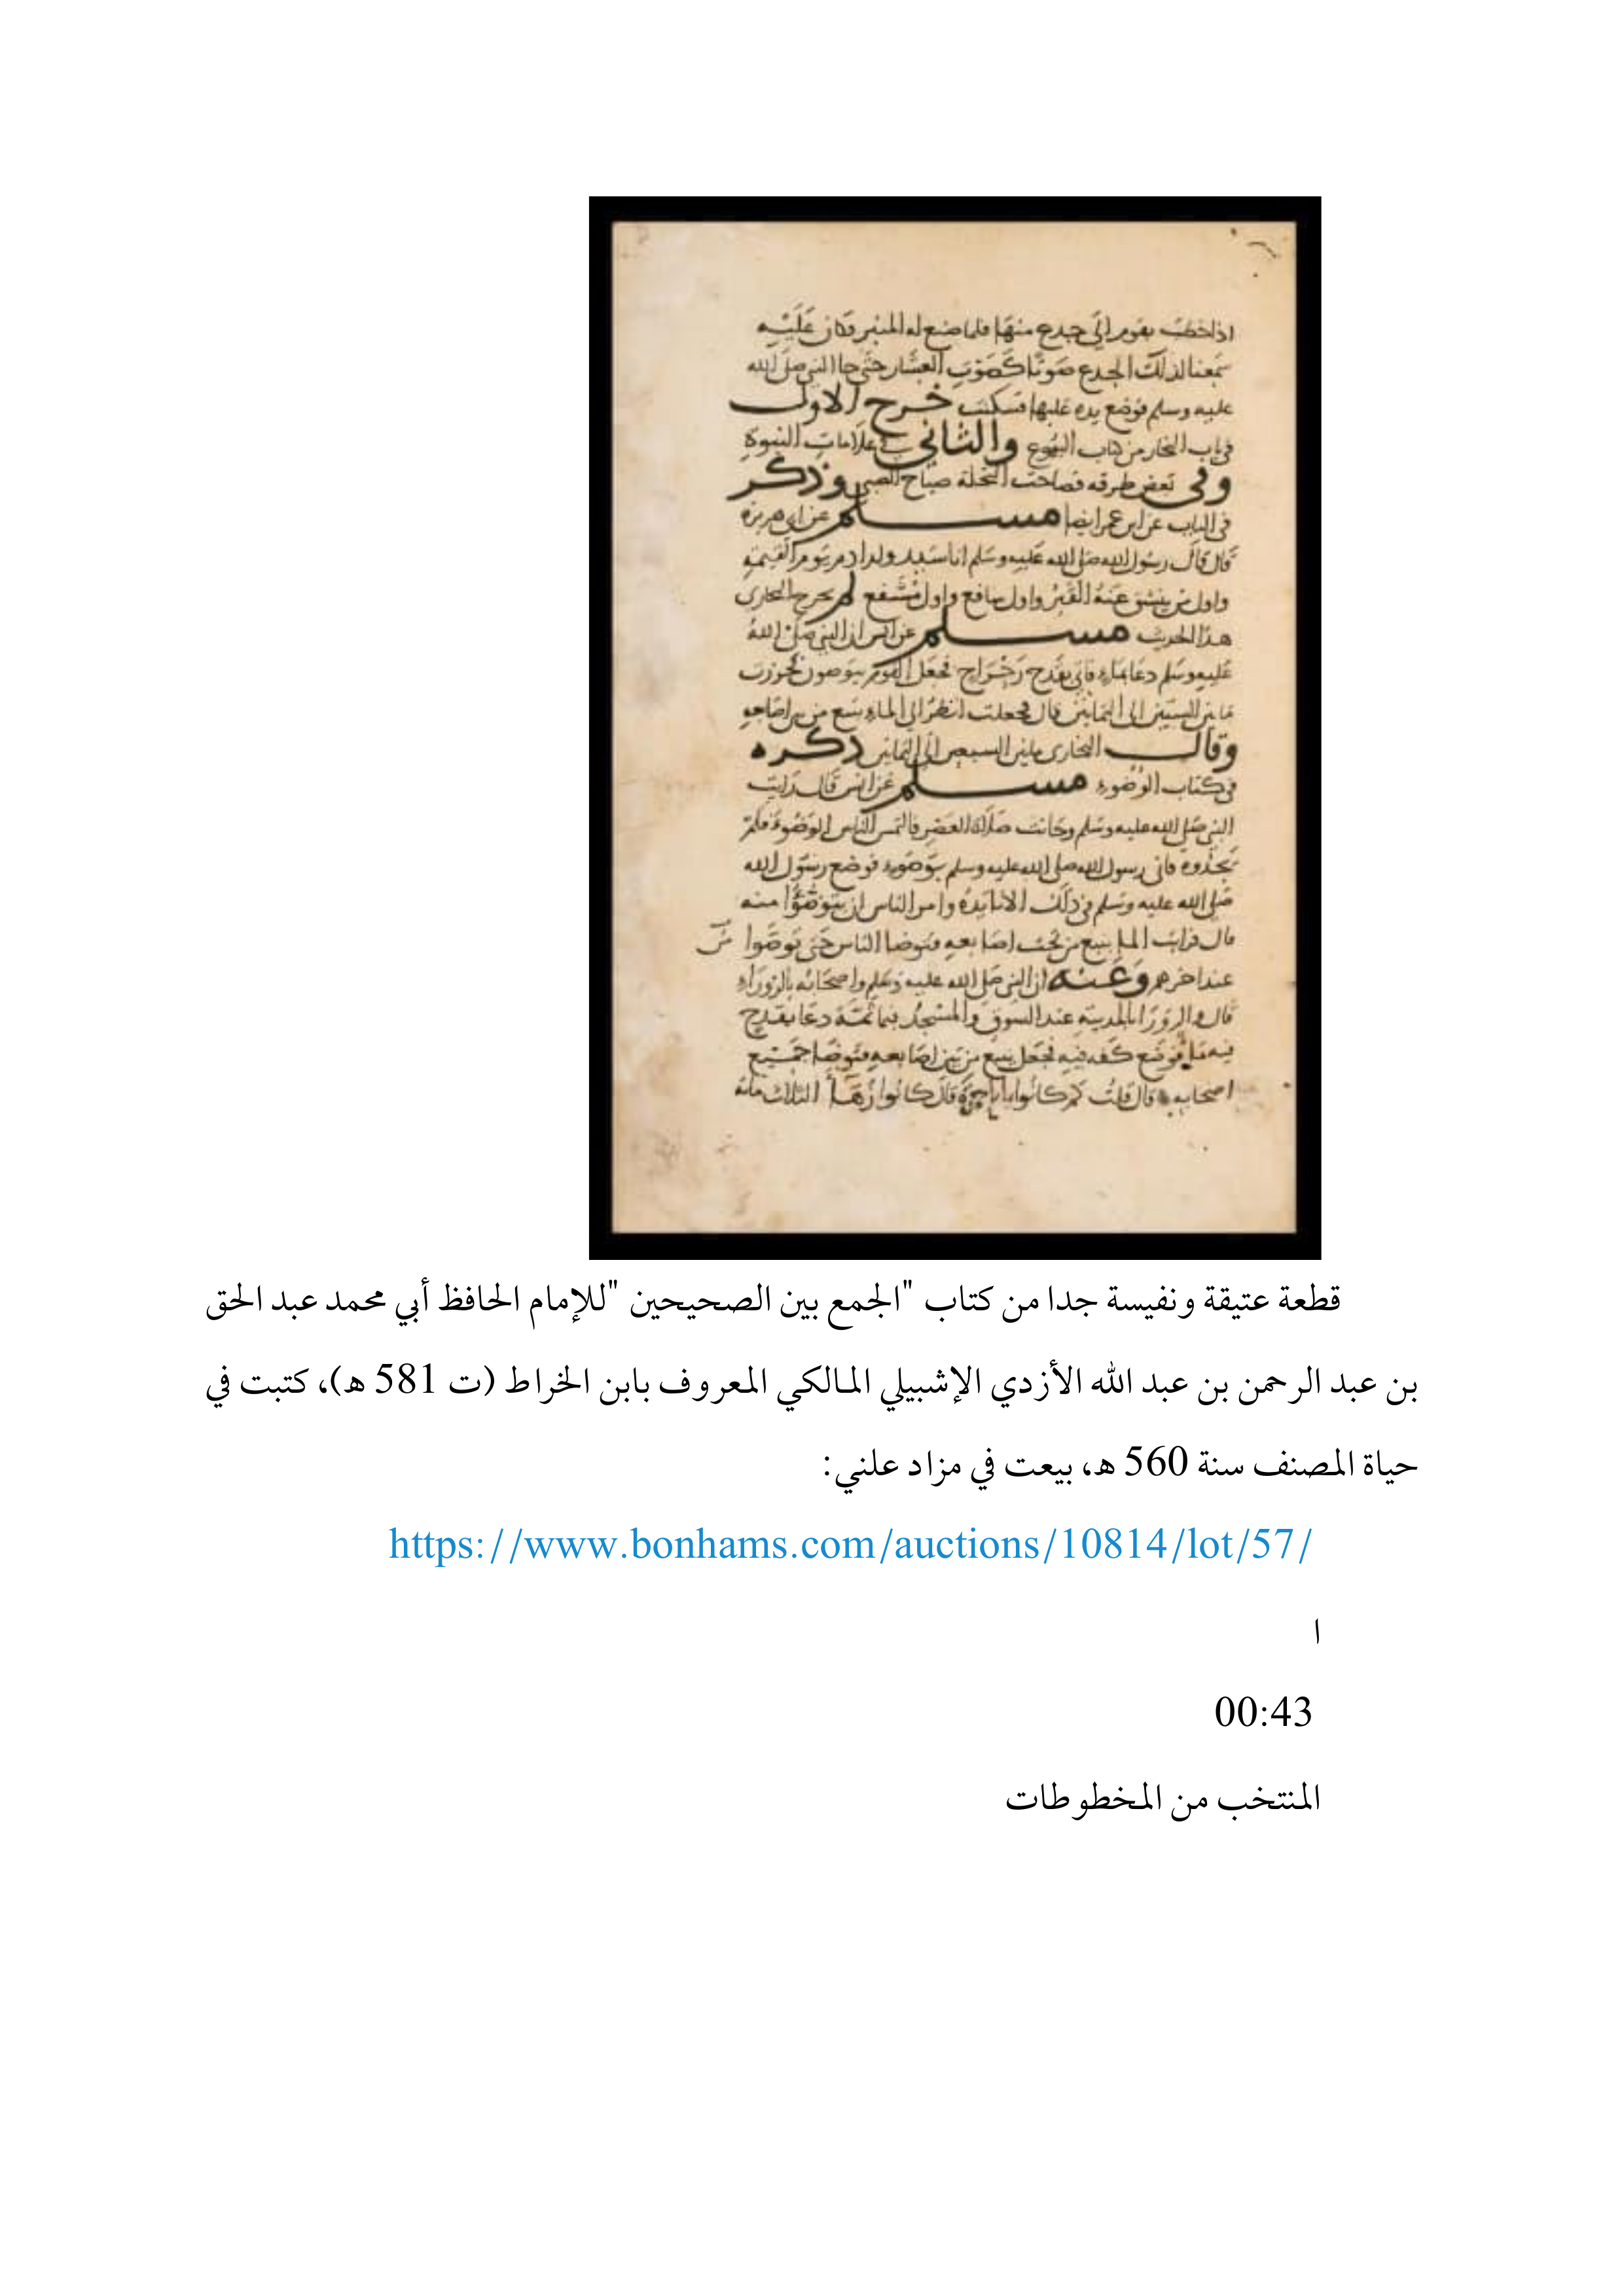 اذا خطب يقوم الَى جدع منهَا فلما صنع له المنبر فكان عَلَيْهِ
سَمعنا لذلكَ الجدع صَوتًا كَصَوْتِ العِشَار حَتَّى جا النبى صلى الله
عليه وسلم فوضع يده عليها فسكنت خرج الاول
فى باب النجار من كتاب البيوع والثانى فى علامات النبوة
وفى بعض طرقه فصاحت النخلة صياح الصبى وذكر
فى الباب عن ابن عمر ايضا مسلم عن ابى هريرة
قال قال رسول الله صلى الله عليه وسلم انا سيد ولد ادم يوم القيمة
واول من ينشق عَنهُ القَبْرُ واول سافع واول مُشَفع لم يخرج البخارى
هذا الحديث مسلم عن انس ان النبى صلى اللهُ
عليه وسلم دعا بماءٍ فاتى بقَدَح رَحْرَاحٍ فجعَل القوم يتوضون فحَزرت
مَا بين الستين الى الثمانين قال فجعلت انظرُ الى الماءِ ينبع من بين اصابعهِ
وقال البخارى ما بين السبعين الى الثمانين ذكره
فى كتاب الوُضوء مسلم عَن انس قال رايت
النبى صلى الله عليه وسلم وحانت صَلاة العَصْر فالتمس الناس الوَضُوءَ فلم
يَجدُوه فاتى رسول الله صلى الله عليه وسلم بوَضوءٍ فوضع رسُول الله
صلى الله عليه وسلم فى ذلك الانا يَدهُ وامر الناس ان يتوضَّؤُا منه
قال فرايت الما ينبع من تحت اصَابعهِ فتوضا النَاس حَتى توضَّوا مِن
عند اخرهم وَعَنه ان النبى صَلى الله عليه وَسَلم واصحَابُه بالزورَاءِ
قال والزوَرَا بالمدينةِ عند السوق والمَسْجدُ فيمَا ثَمَّةَ دعَا بقَدَحٍ
فيه مَا فوضع كَفه فيه فجَعَل ينبع من بَين اصَابعهِ فتوضَا جَميْع
اصحابه قال قلتُ كم كانُوا يابا حمزة قال كانُوا زُهَا الثلاث مائه
قطعة عتيقة ونفيسة جدا من كتاب "الجمع بين الصحيحين "للإمام الحافظ أبي محمد عبد الحق
بن عبد الرحمن بن عبد الله الأزدي الإشبيلي المالكي المعروف بابن الخراط (ت 581 ه)، كتبت في
حياة المصنف سنة 560 ه، بيعت في مزاد علني:
https://www.bonhams.com/auctions/10814/lot/57/
ا
00:43
المنتخب من المخطوطات